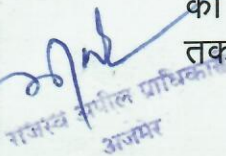 को
तक
राजस्व अपील प्राधिकारी
अजमेर